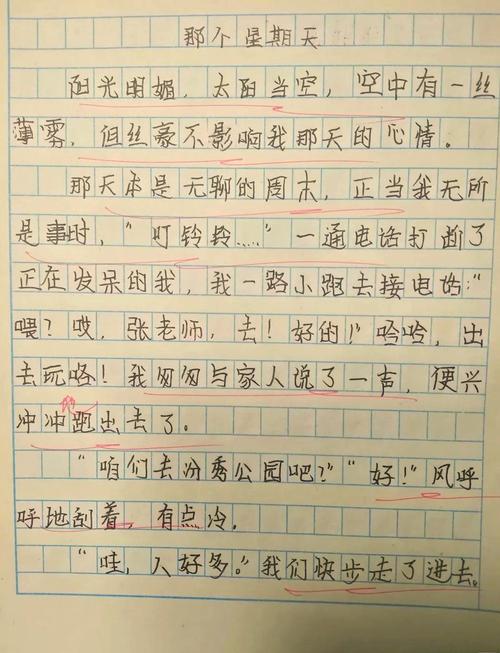 那个星期天
阳光明媚，太阳当空，空中有一丝
薄雾，但丝豪不影响我那天的心情。
那天本是无聊的周末，正当我无所
是事时，“叮铃铃……”一通电话打断了
正在发呆的我，我一路小跑去接电话：“
喂？哎，张老师，去！好的！”哈哈，出
去玩咯！我匆匆与家人说了一声，便兴
冲冲地跑出去了。
“咱们去汾秀公园吧？”“好！”风呼
呼地刮着，有点冷。
“哇，人好多。”我们快步走了进去。